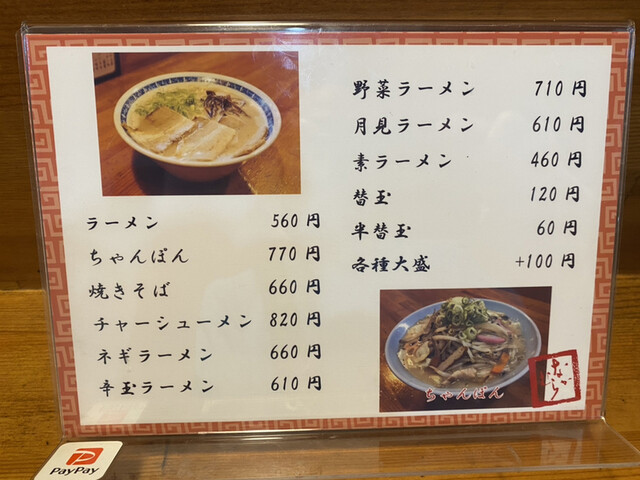 ラーメン 560円
ちゃんぽん 770円
焼きそば 660円
チャーシューメン 820円
ネギラーメン 660円
辛玉ラーメン 610円
野菜ラーメン 710円
月見ラーメン 610円
素ラーメン 460円
替玉 120円
半替玉 60円
各種大盛 +100円
ちゃんぽん
PayPay